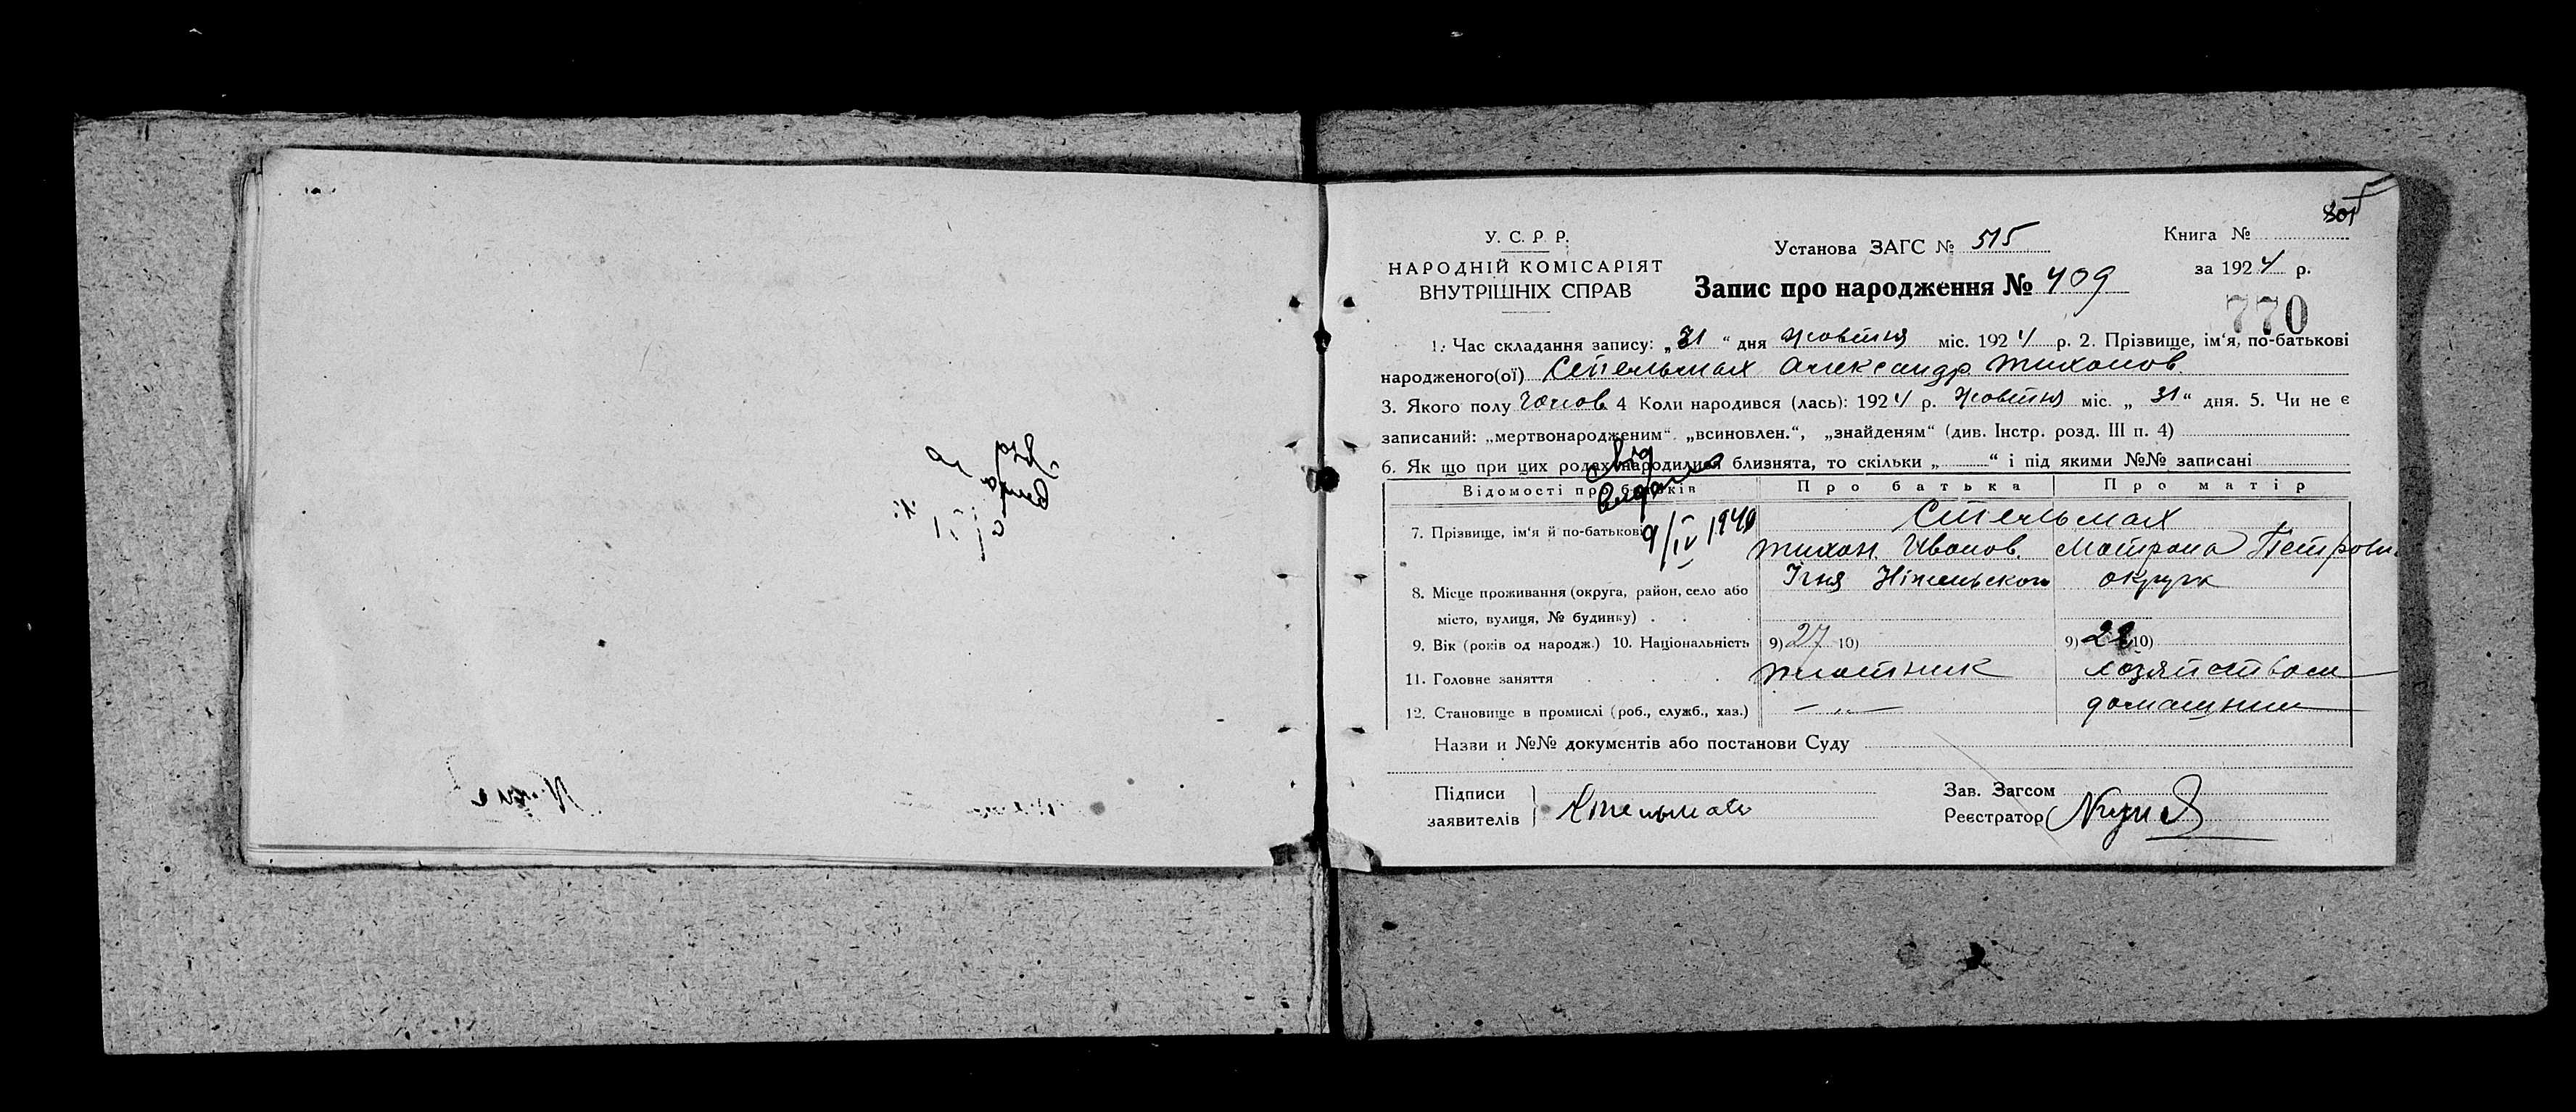 801
У. С. Р. Р.
НАРОДНІЙ КОМІСАРІЯТ
ВНУТРІШНІХ СПРАВ
Установа ЗАГС № 515
Книга №
за 1924 р.
Запис про народження № 409
770
1. Час складання запису: „31“ дня Жовтня міс. 1924 р. 2. Прізвище, ім‘я, по-батькові
народженого(ої) Стельмах Александр Тихонов.
3. Якого полу Чолов. 4 Коли народився (лась): 1924 р. Жовтня міс. „31“ дня. 5. Чи не є
записаний: „мертвонародженим“. „всиновлен.“, „знайденям“ (див. Інстр. розд. III п. 4)
6. Як що при цих родах народилися близнята, то скільки „ “ і під якими №№ записані
Відомості про батьків Про батька Про матір
Стельмах
7. Прізвище, ім‘я й по-батькові Тихон Иванов. Матрона Петровн.
9/IV 1940
8. Місце проживання (округа, район, село або Ічня Ніженьской округи
місто, вулиця, № будинку)
9. Вік (років од народж.) 10. Національність 9) 27 10) 9) 22 10)
11. Головне заняття плотник хозяйством
12. Становище в промислі (роб., служб., хаз.) — „ — домашним
Назви и №№ документів або постанови Суду
Підписи
заявителів Стельмах
Зав. Загсом
Реєстратор